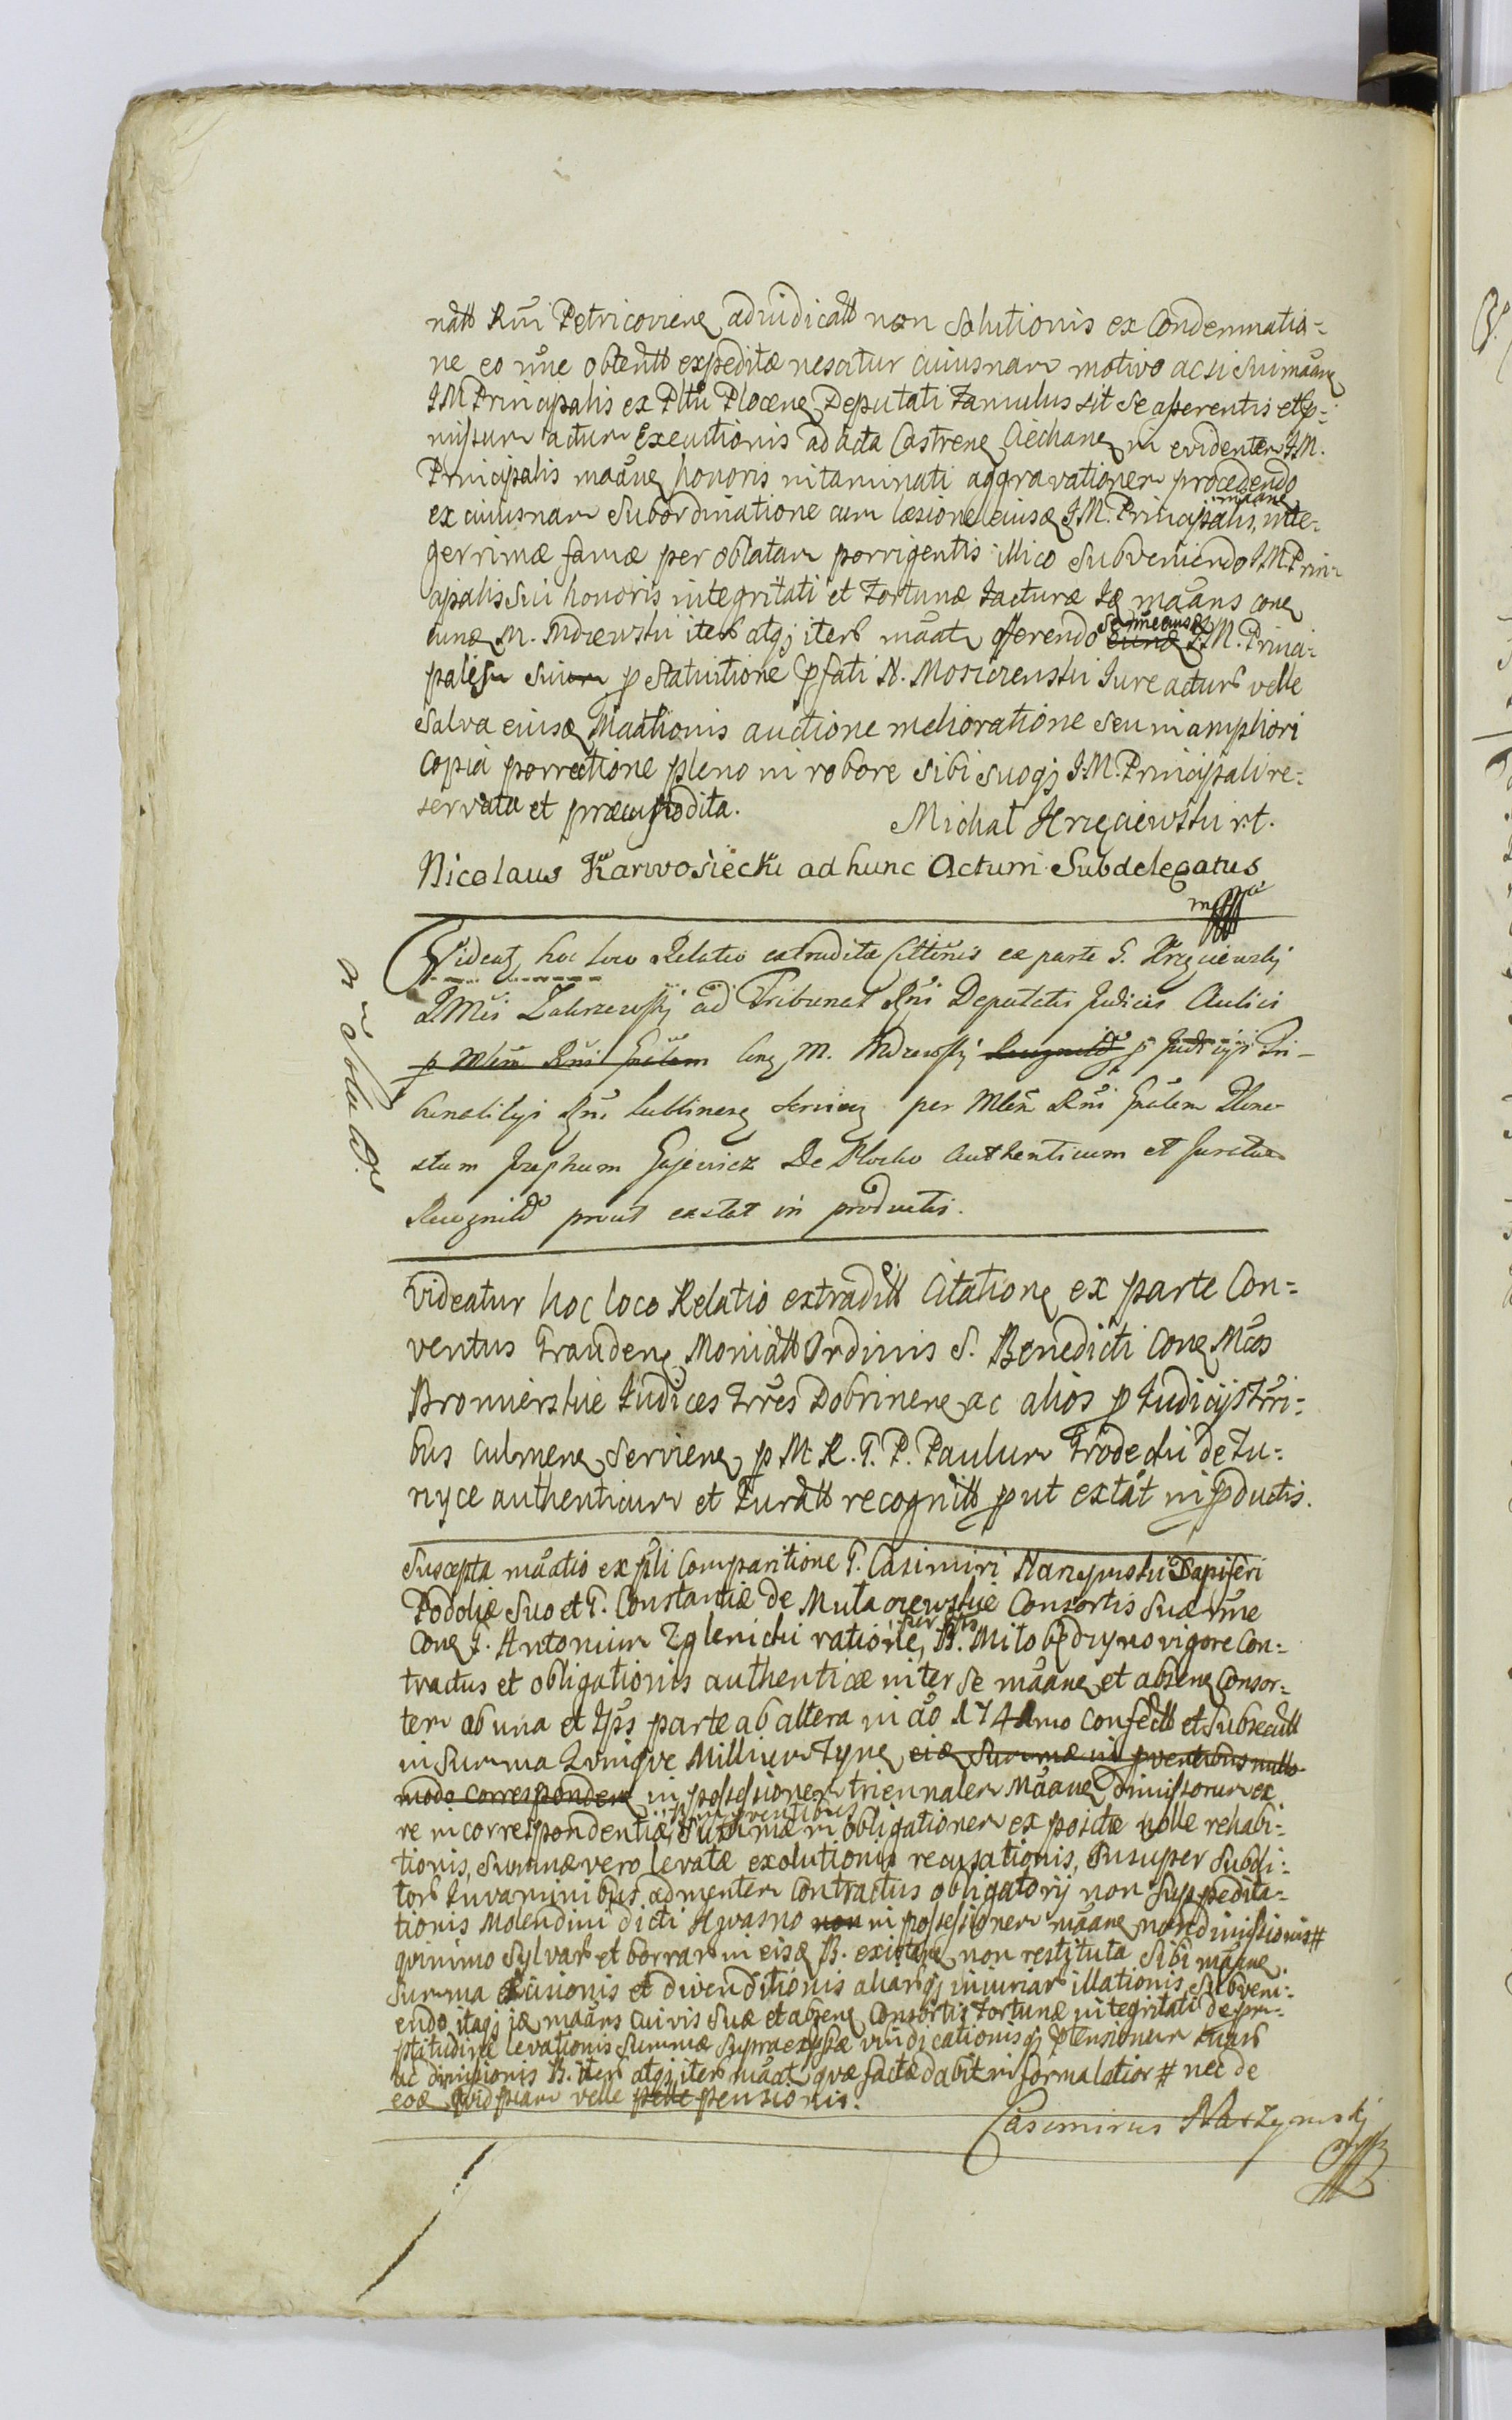 natt Rni Petricoviene adiudicatt non Solutionis ex Condemnatio=
ne eo nõie obtentt expeditæ nescitur cuiusnam motivo acsi Sui mãane
I.M. Principalis ex Pltũ Plocene Deputati Famulus sit Se asserentis et
missum actum Executionis ad acta Castrene Ciechane in evidentem I.M.
Principalis mãane honoris intaminati aggravationem procedendo
ex cuiusnam Subordinatione cum læsione eiusdæ I.M. Principalis mãane inte=
gerrimæ famæ per oblatam porrigentis illico Subveniendo I.M. Prin=
cipalis Sui honoris integritati et Fortunæ Iacturæ Id mãans cone
eund M. Mdzewski iterb atqj iterb mãat offerendo I.M. Princi=
palem Suum p Statuitione pfati N. Moszczenski Iure acturb velle
Salva eiusd Mãationis auctione melioratione Seu in ampliori
Copia porrectione pleno in robore Sibi Suoqj I.M. Principali re=
servata et præcustodita.
Michał Hrzęciewski r.t.
Nicolaus Karwosiecki ad hunc Actum Subdelegatus
mpp
Videat hoc loco Relatio extraditæ Cittnis ex parte G.
IMci Zakrzewskj ad Tribunal Rni Deputati Judicis Aulici
p Mlem Rni Gnalem Cone M. Mdzewskj Recognitt p Judicijs Tri-
bunalitijs Rni Lublinens Serviens per Mlem Rni Gnalem Hone-
stum Josephum Gajewicz De Plocko Authenticum et Juratum
Recognitt prout extat in productis.
Videatur hoc loco Relatio extraditt Citatione ex parte Con=
ventus Graudene Moniatt Ordinis S. Benedicti Cone Mcos
Bromierskie Iudices Trres Dobrinene ac alios p Iudicijs Trri=
bus Culmene Serviene p M. R. G. P. Paulum Grodecki de Zu=
ryce authenticum et Iuratt recognitt put extat in pductis.
Suscepta mãatio ex pñli Comparitione G. Casimiri Narzymski Dapiferi
Podoliæ Suo et G. Constantiæ de Consortis Suæ nõie
Cone G. Antonium Zglenicki ratione, B. Miłobędzyno vigore Con=
tractus et obligationis authenticæ inter Se mãane et absene Consor=
tem ab una et Ips parte ab altera in ão confectt et Subsecutt
in Summa Quinque Millium Tyne eid Summæ in pventibus nullo
modo correspondene in possessionem triennalem Mãane dimissorum ex
re incorrespondentiæ Summæ in obligationem expositæ nolle rehabi=
tionis, Summæ vero levatæ exolutionis recusationis, Insuper Subdi=
torb Iuvaminibus ad mentem Contractus obligatorij non Suppedita=
tionis Molendini dicti Hwasno non in possessionem mãane non dimissionis #
quinimo Sylvarb et borrarb in eisd B. existene non restituta Sibi mãane
Summa excisionis et divenditionis aliarqj iniuriarb illationis, Subveni=
endo itaqj id mãans cuivis Suæ et absene Consortis Fortunæ integritati
levationis Summæ Supraexpssæ vindicationisqj
ac dimissionis B. iterb atqj iterb mãat quæ facta dabit in forma latior # nec de
eod quidpiam velle pensionis.
Casimirus Narzymskj
mpp